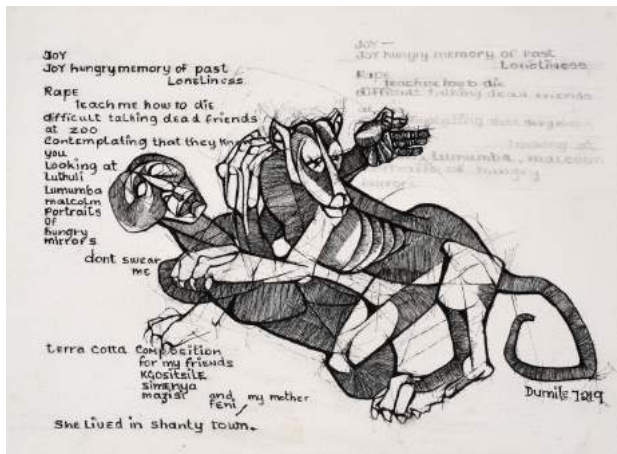 JOY
JOY hungry memory of past
Loneliness
Rape
teach me how to die
difficult talking dead friends
at zoo
Contemplating that they know
you
Looking at
Luthuli
Lumumba
malcolm
Portraits
Of
hungry
mirrors
dont swear
me
terra cotta composition
for my friends
KGOSITSILE
simenya
mazisi and my mother
FENI
She Lived in shanty town.
JOY
JOY hungry memory of past
Loneliness
Rape
teach me how to die
difficult talking dead friends
at
Looking at
Lumumba, malcolm
of hungry
Dumile